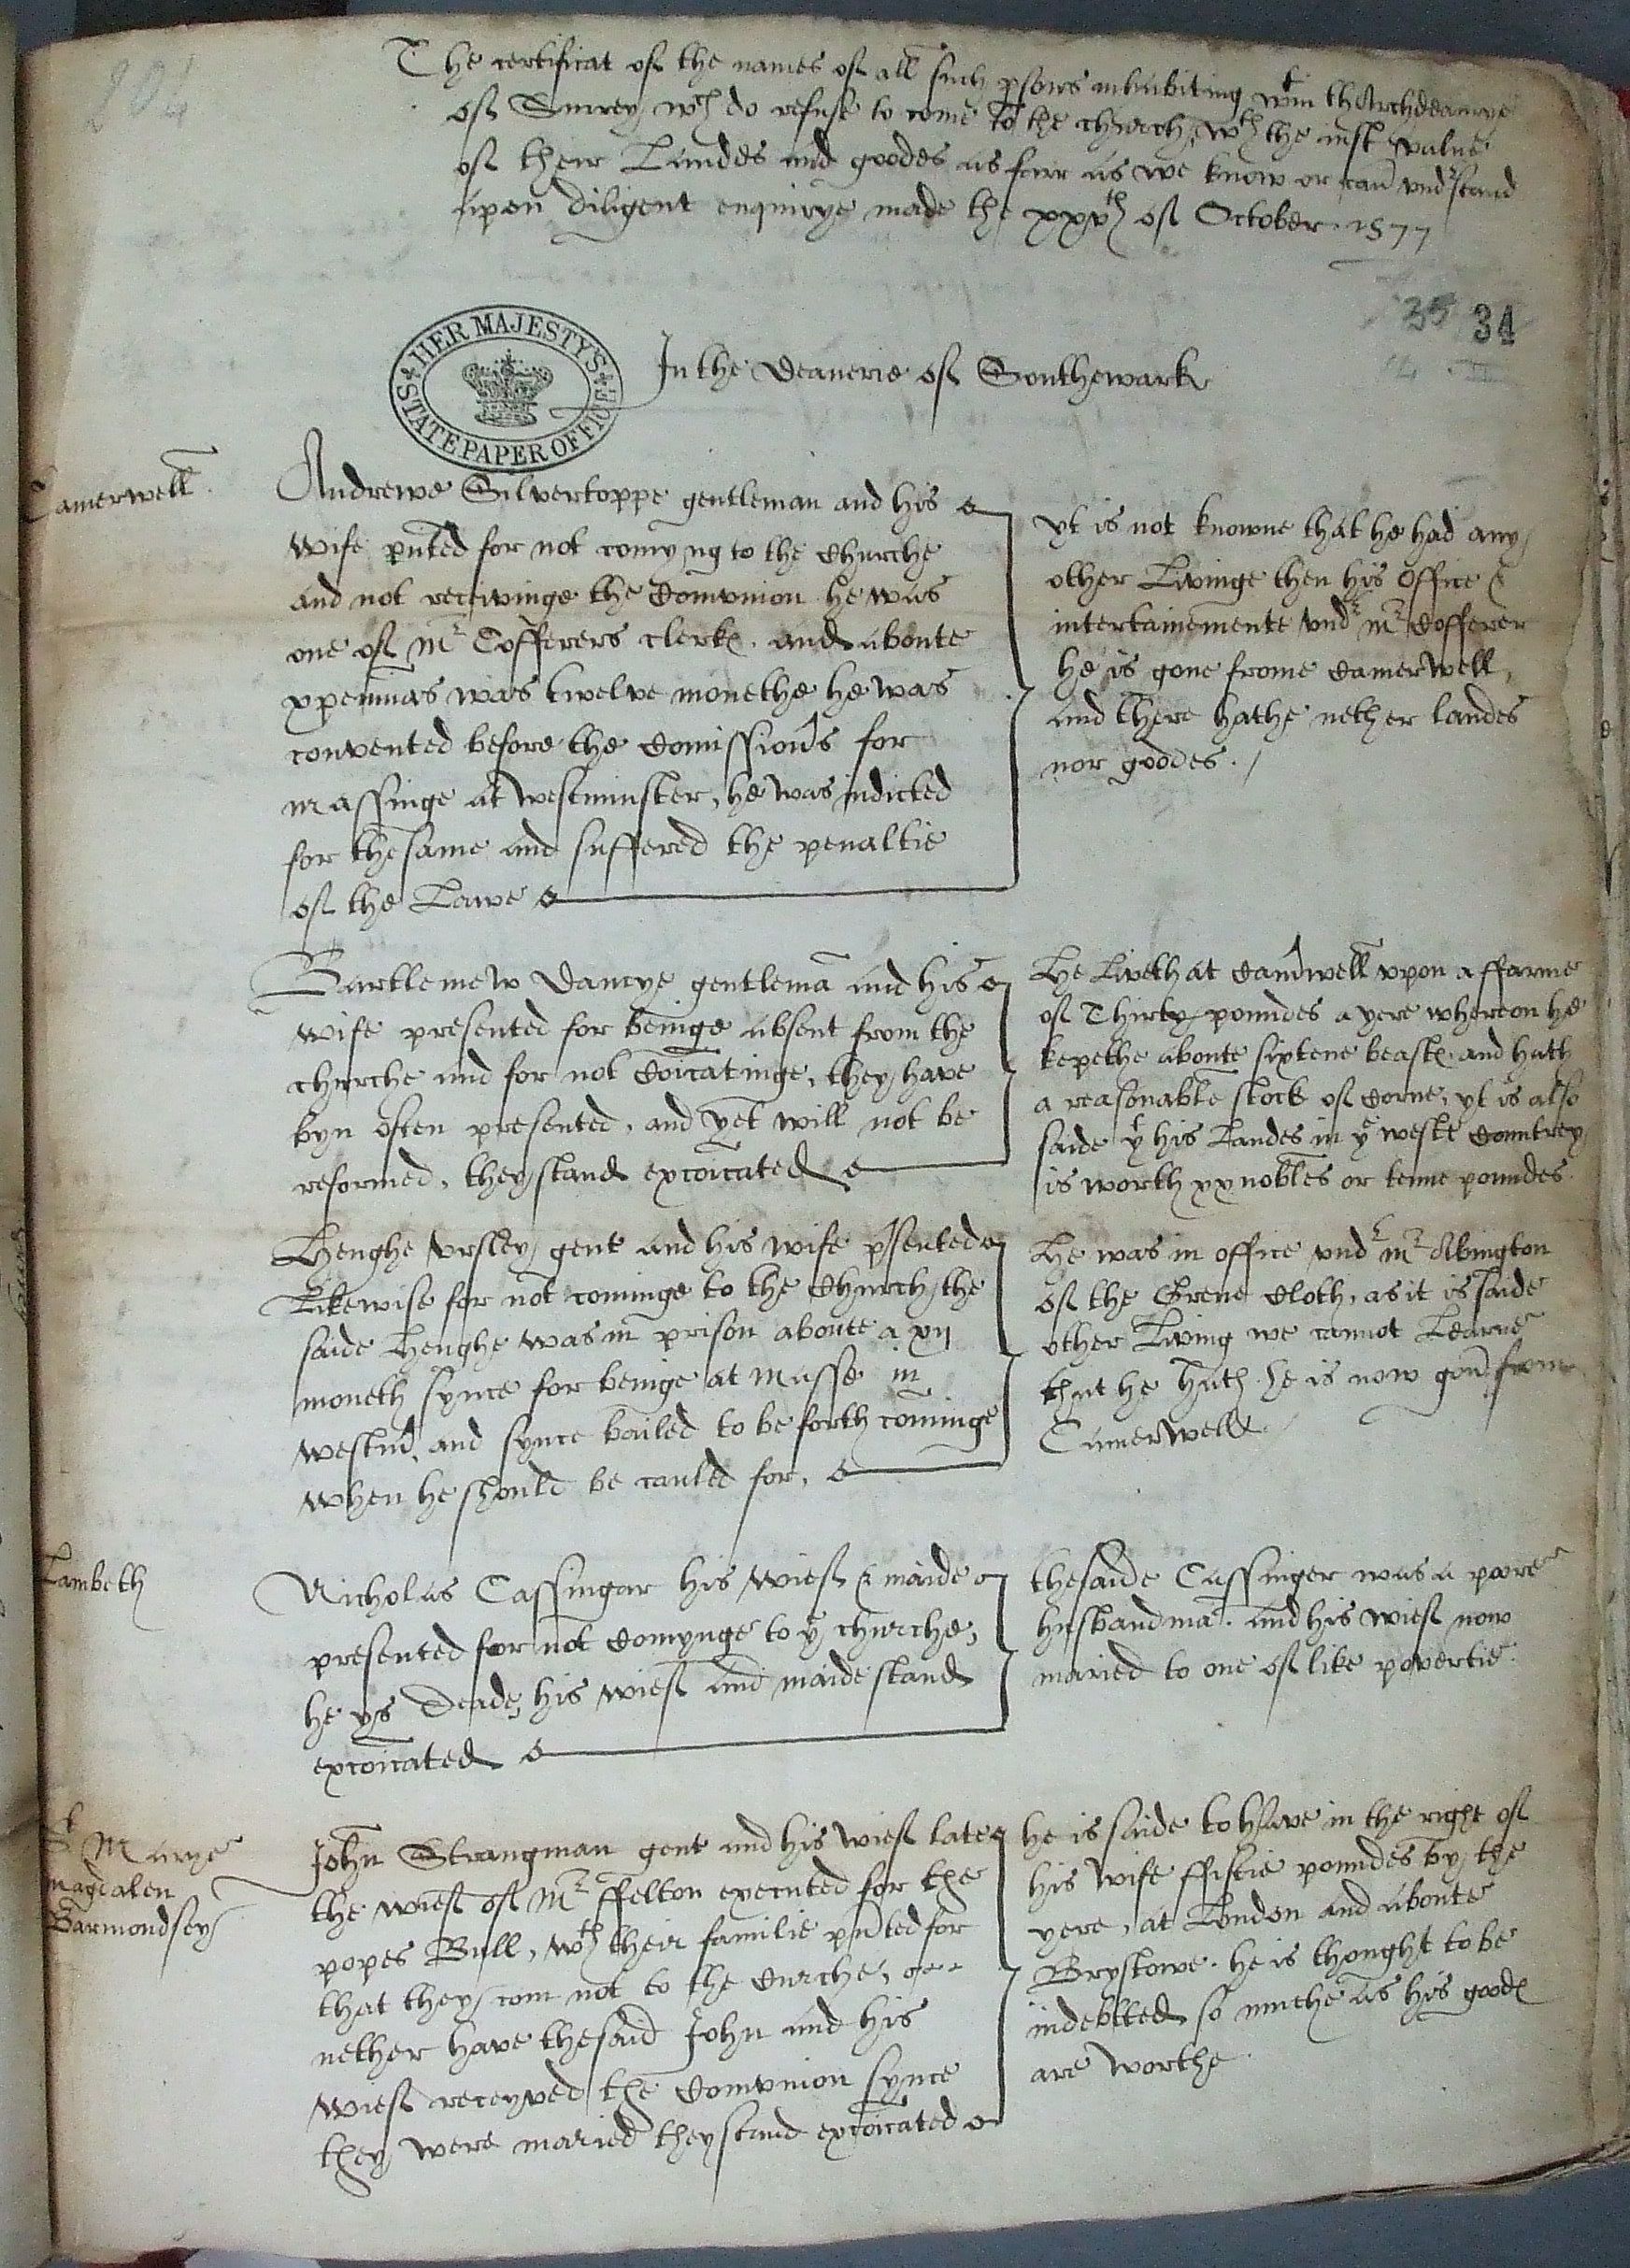 204
The certificat of the names of all such psons inhabiting wtin tharchdeacnrye
of Surrey wch do refuse to come to the church, wth the iust value
of their Landes and goodes as farr as we know or can vndrstand
upon diligent enquirye made the xxvth of October. 1577
35 34
HER MAJESTY'S STATE PAPER OFFICE
In the Deanerie of Southewark
Camerwell.
Andrewe Silvertoppe gentleman and his
wife pnted for not comyng to the Churche
and not receivinge the Comvnion he was
one of Mr Cofferers clerkes. and aboute
xpemmas was twelve monethe he was
convented before the Comissionrs for
massinge at westminster, he was indicted
for thesame and suffered the penaltie
of the Lawe
yt is not knowne that he had any
other Livinge then his Office &
intertainemente vndr Mr Cofferer
he is gone frome Camerwell,
and there hathe nether landes
nor goodes.
Bartlemew Dancye gentlema and his
wife presented for beinge absent from the
churche and for not Coicatinge, they have
byn often presented, and yet will not be
reformed, they stand excoicated
He Liveth at Camrwell vpon a ffarme
of Thirty poundes a yere whereon he
kepethe aboute sixtene beastes and hath
a reasonable stock of Corne, yt is also
saide yt his Landes in ye weste Countrey
is worth xx nobles or tenne poundes.
Henghe Vrsley gent and his wife psented
Likewise for not cominge to the Church, the
saide Henghe was in prison aboute a xij
moneth synce for beinge at Masse in
westmr, and synce bailed to be forth cominge
when he should be cauled for,
He was in office vndr mr Abington
of the Grene Cloth, as it is saide
other Living we cannot Learne
that he hath. he is now gon from
Camerwell.
Lambeth
Nicholas Cassingar his wief & maide
presented for not Comynge to ye churche,
he ys Deade, his wief and maide stand
excoicated
thesaide Cassinger was a poore
husbandma. and his wief now
maried to one of like povertie.
St Marye
magdalen
Barmondsey
John Strangman gent and his wief late
the wief of Mr ffelton executed for the
popes Bull, wth their familie pnted for
that they com not to the Curche,
nether have thesaid John and his
wief receyved the Comvnion synce
they were maried they stand excoicated
he is saide to have in the right of
his wife ffiftie poundes by the
yere, at London and aboute
Brystowe. he is thought to be
indebtted so muche as his goodes
are worthe